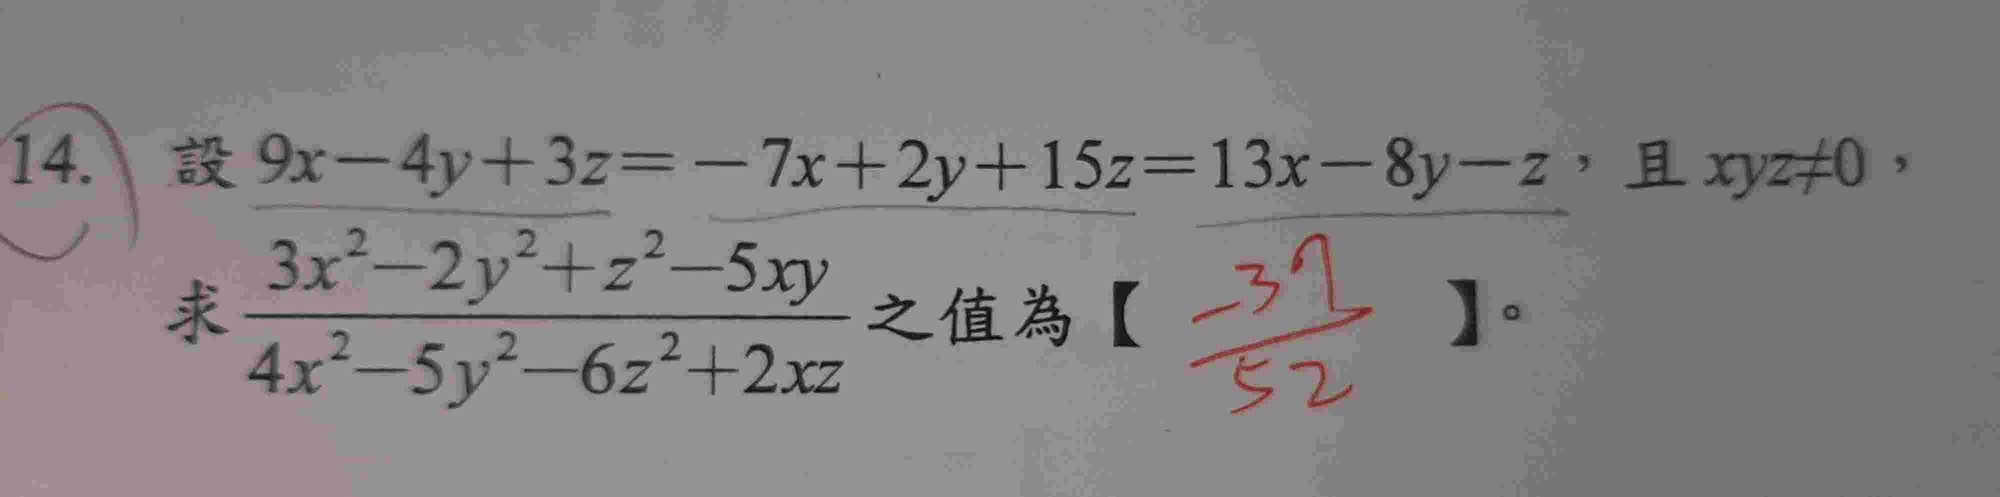 14. 設 9x-4y+3z=-7x+2y+15z=13x-8y-z，且 xyz≠0，
求 (3x²-2y²+z²-5xy)/(4x²-5y²-6z²+2xz) 之值為【 -39/52 】。